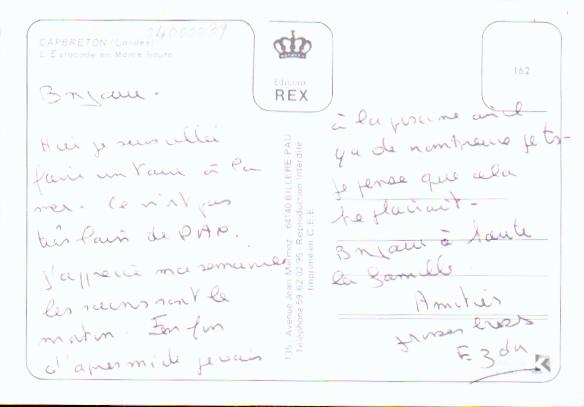 04000231
CAPBRETON (Landes)
L'Estacade en Marée haute
Editions
REX
162
Bonjour.
Hier je suis allée
faire un tour à la
mer. Ce n'est pas
très loin de DAX.
J'apprécie ma semaine
les soins sont le
matin. En fin
d'après midi je vais
135, Avenue Jean Mermoz 64140 BILLERE-PAU
Téléphone 59.62.02.95 Reproduction Interdite
Imprimé en C.E.E.
à la piscine où il
y a de nombreux jets-
Je pense que cela
te plairait-
Bonjour à toute
la famille
Amitiés
grosses bises